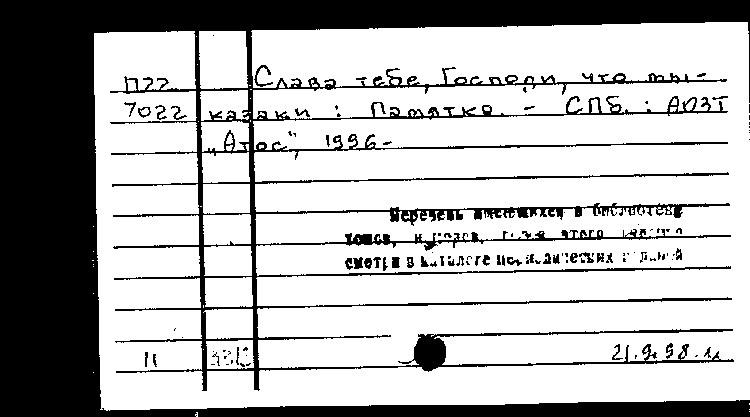 П22 Слава тебе, Господи, что мы-
7022 казаки : Памятка. - СПБ. : АОЗТ
„Атос", 1996-
Перечень имеющихся в библиотеке
томов, номеров, этого
смотри в каталоге периодических изданий
21.9.98.